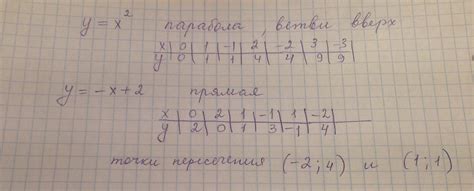 y = x² парабола, ветви вверх
x | 0 | 1 | -1 | 2 | -2 | 3 | -3
y | 0 | 1 | 1 | 4 | 4 | 9 | 9
y = -x + 2 прямая
x | 0 | 2 | 1 | -1 | 1 | -2
y | 2 | 0 | 1 | 3 | -1 | 4
точки пересечения (-2; 4) и (1; 1)